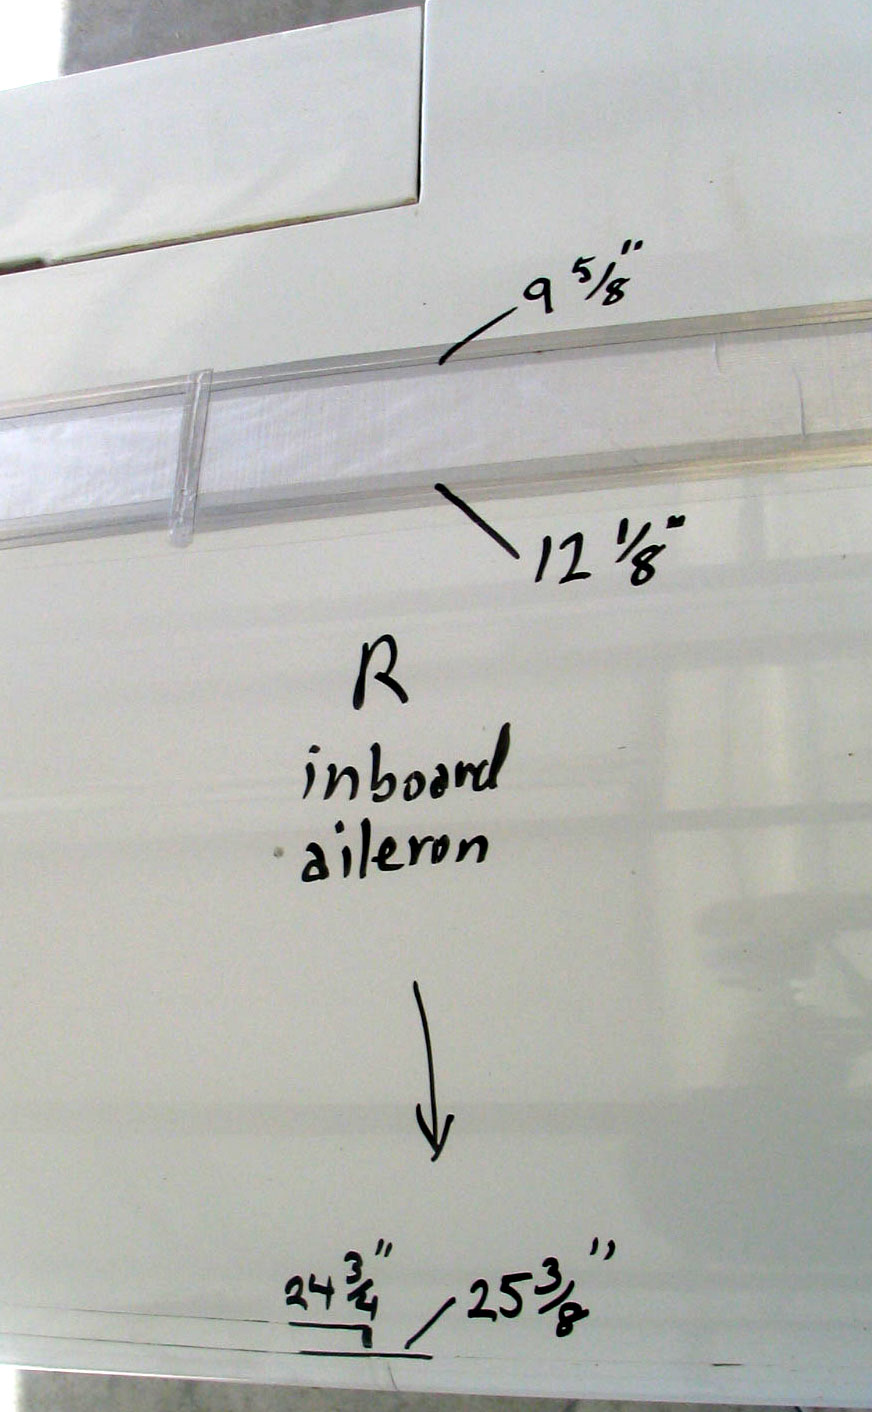 9 5/8"
12 1/8"
R
inboard
aileron
24 3/4"
25 3/8"